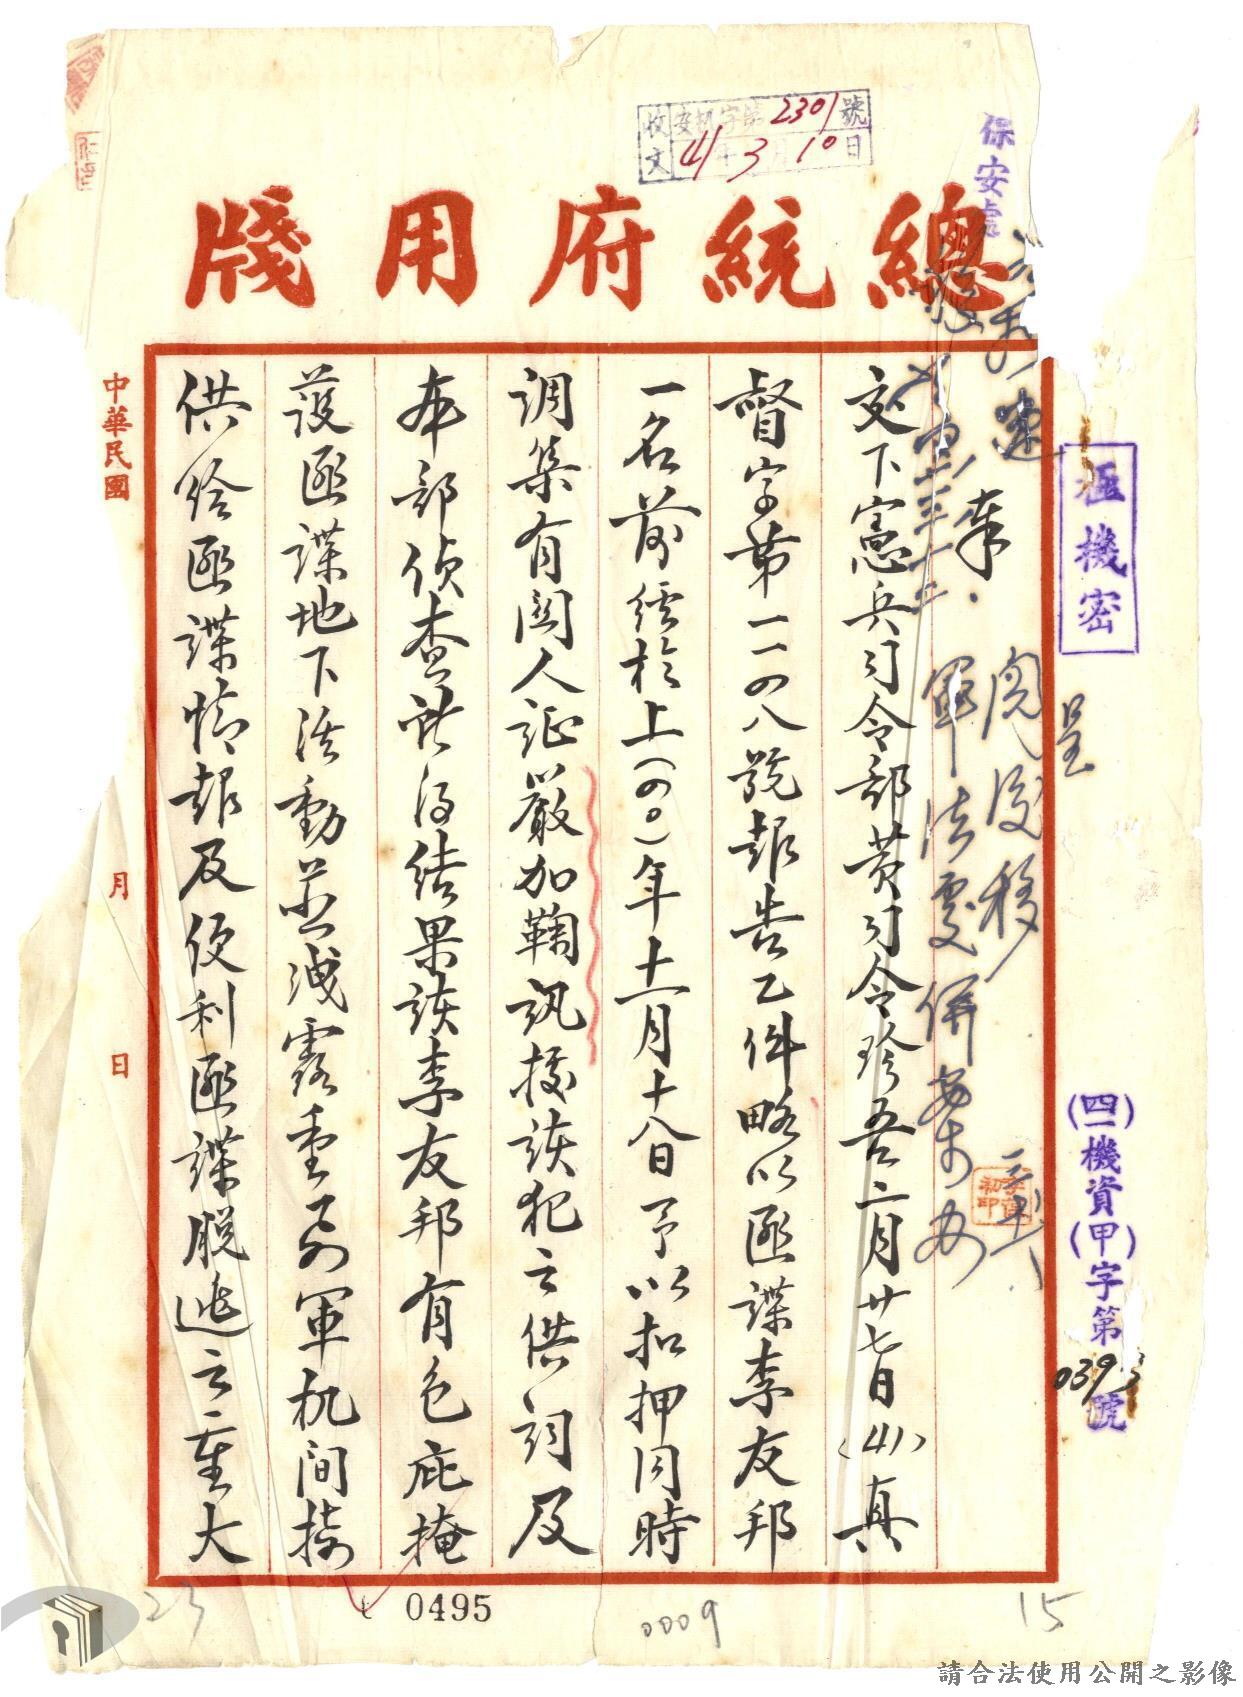 收文 安機字第2301號
41年3月10日
保安處
總統府用牋
極機密
呈
(四一)機資(甲)字第0393號
閱後移
軍法處併案辦
奉
交下憲兵司令部黃司令珍吾二月廿七日(41)真
督字第一一四八號報告乙件略以匪諜李友邦
一名前經於上(四○)年十一月十八日予以扣押同時
調集有關人証嚴加鞫訊據該犯之供詞及
本部偵查所得結果該李友邦有包庇掩
護匪諜地下活動並洩露重要軍机間接
供給匪諜情報及便利匪諜脫逃之重大
中華民國
月
日
0495
0009
15
23
請合法使用公開之影像